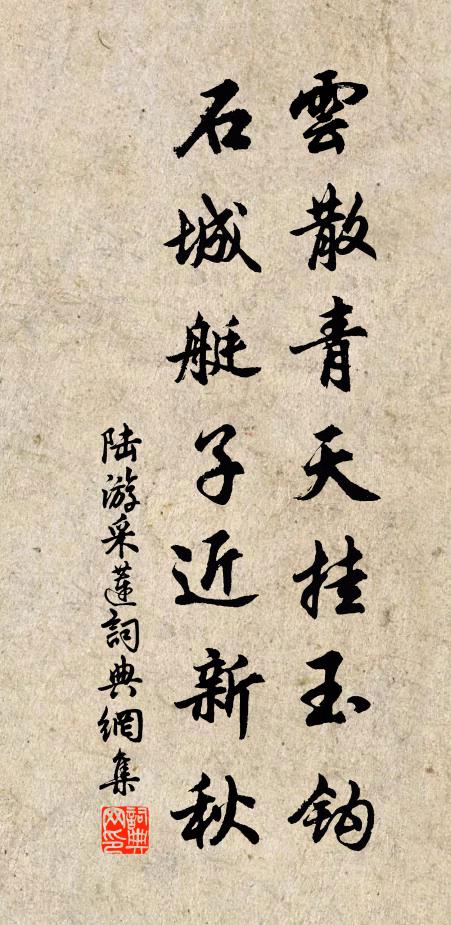 雲散青天挂玉钩
石城艇子近新秋
陆游采蓮詞典網集
詞典网印